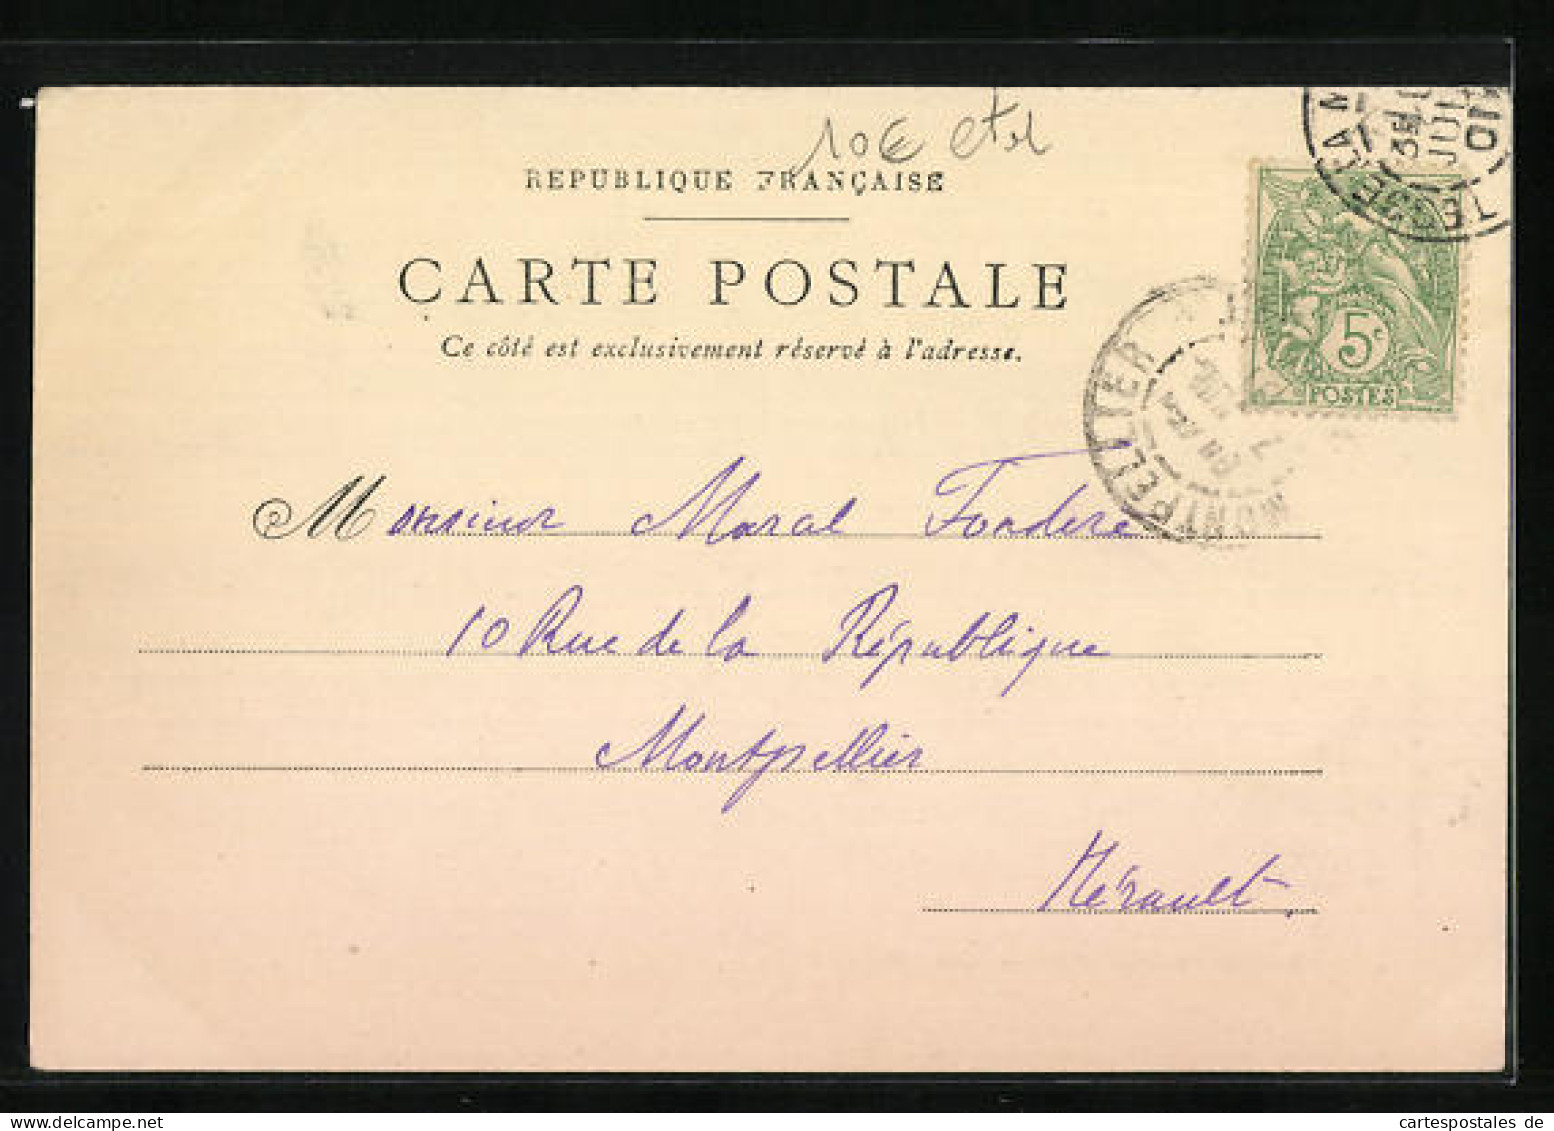 10€ etat
REPUBLIQUE FRANÇAISE
CARTE POSTALE
Ce côté est exclusivement réservé à l'adresse.
5c
POSTES
MONTPELLIER
Monsieur Marcal Fondere
10 Rue de la République
Montpellier
Hérault
cartespostales de